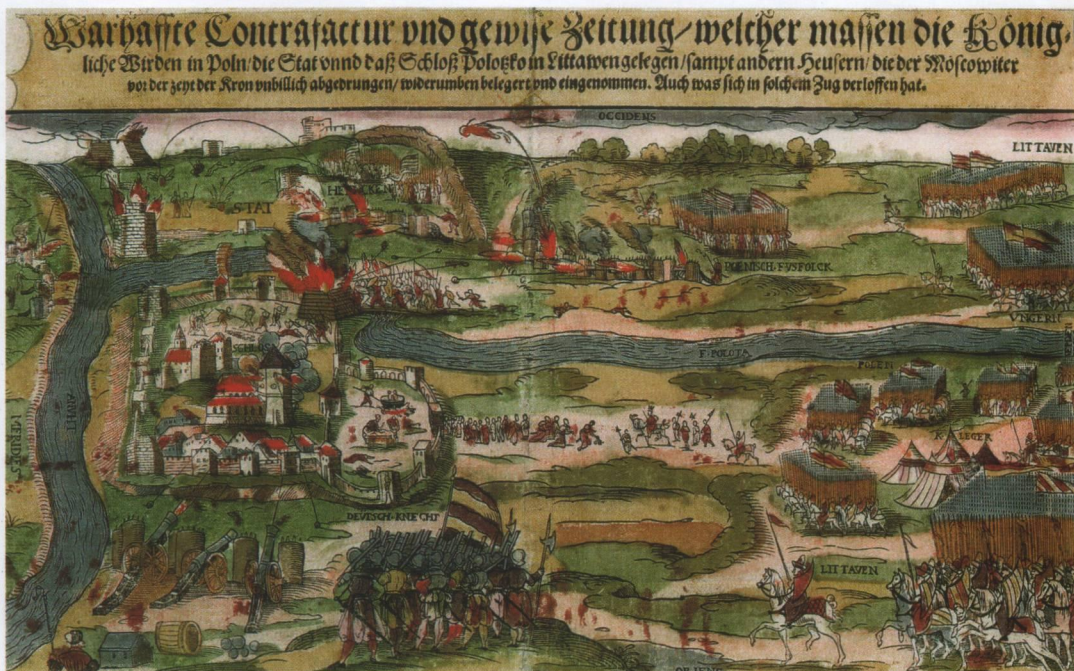 Warhaffte Contrafactur vnd gewise Zeitung/welcher massen die König-
liche Wirden in Poln/die Stat vnnd daß Schloß Polotzko in Littawen gelegen/sampt andern Heusern/die der Moscowiter
vor der zeyt der Kron vnbillich abgedrungen/widerumben belegert vnd eingenommen. Auch was sich in solchem Zug verloffen hat.
OCCIDENS
LITTAVEN
STAT
POLNISCH FVSFOLCK
VNGERN
F. POLOTA
POLEN
LEGER
MERIDIES
DEVTSCH KNECHT
LITTAVEN
ORIENS